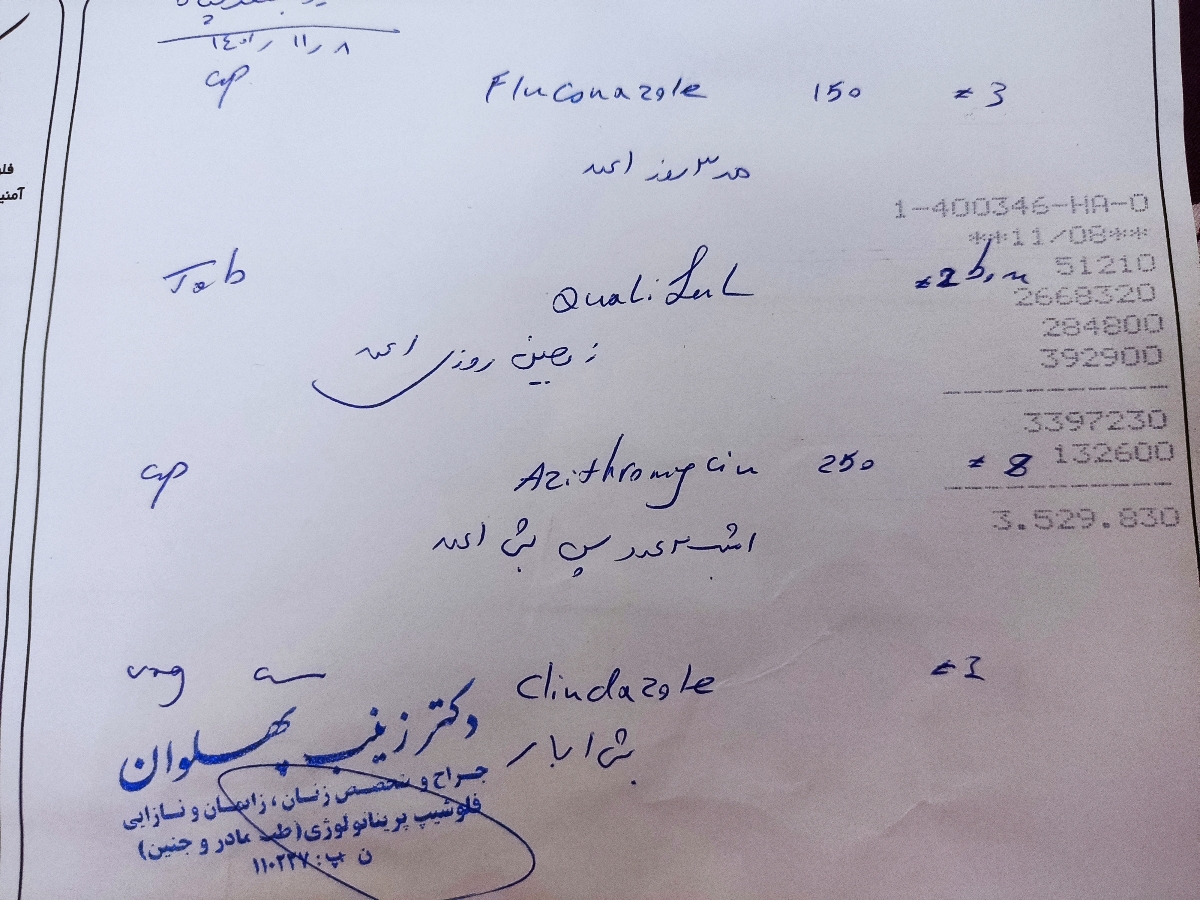 ۱۴۰۱ / ۱۱ / ۸
cap Fluconazole 150 # 3
هر ۳ روز ۱ عدد
1-400346-HA-0
**11/08**
51210
2668320
284800
392900
3397230
132600
3.529.830
Tab Quali #2
روزی ۱ عدد
cap Azithromycin 250 # 8
امشب ۲ عدد سپس شبی ۱ عدد
vag Clindazole #1
شبی ۱ بار
دکتر زینب پهلوان
جراح و متخصص زنان، زایمان و نازایی
فلوشیپ پریناتولوژی (طب مادر و جنین)
ن پ: ۱۱۰۲۳۷
فلو
آمنی